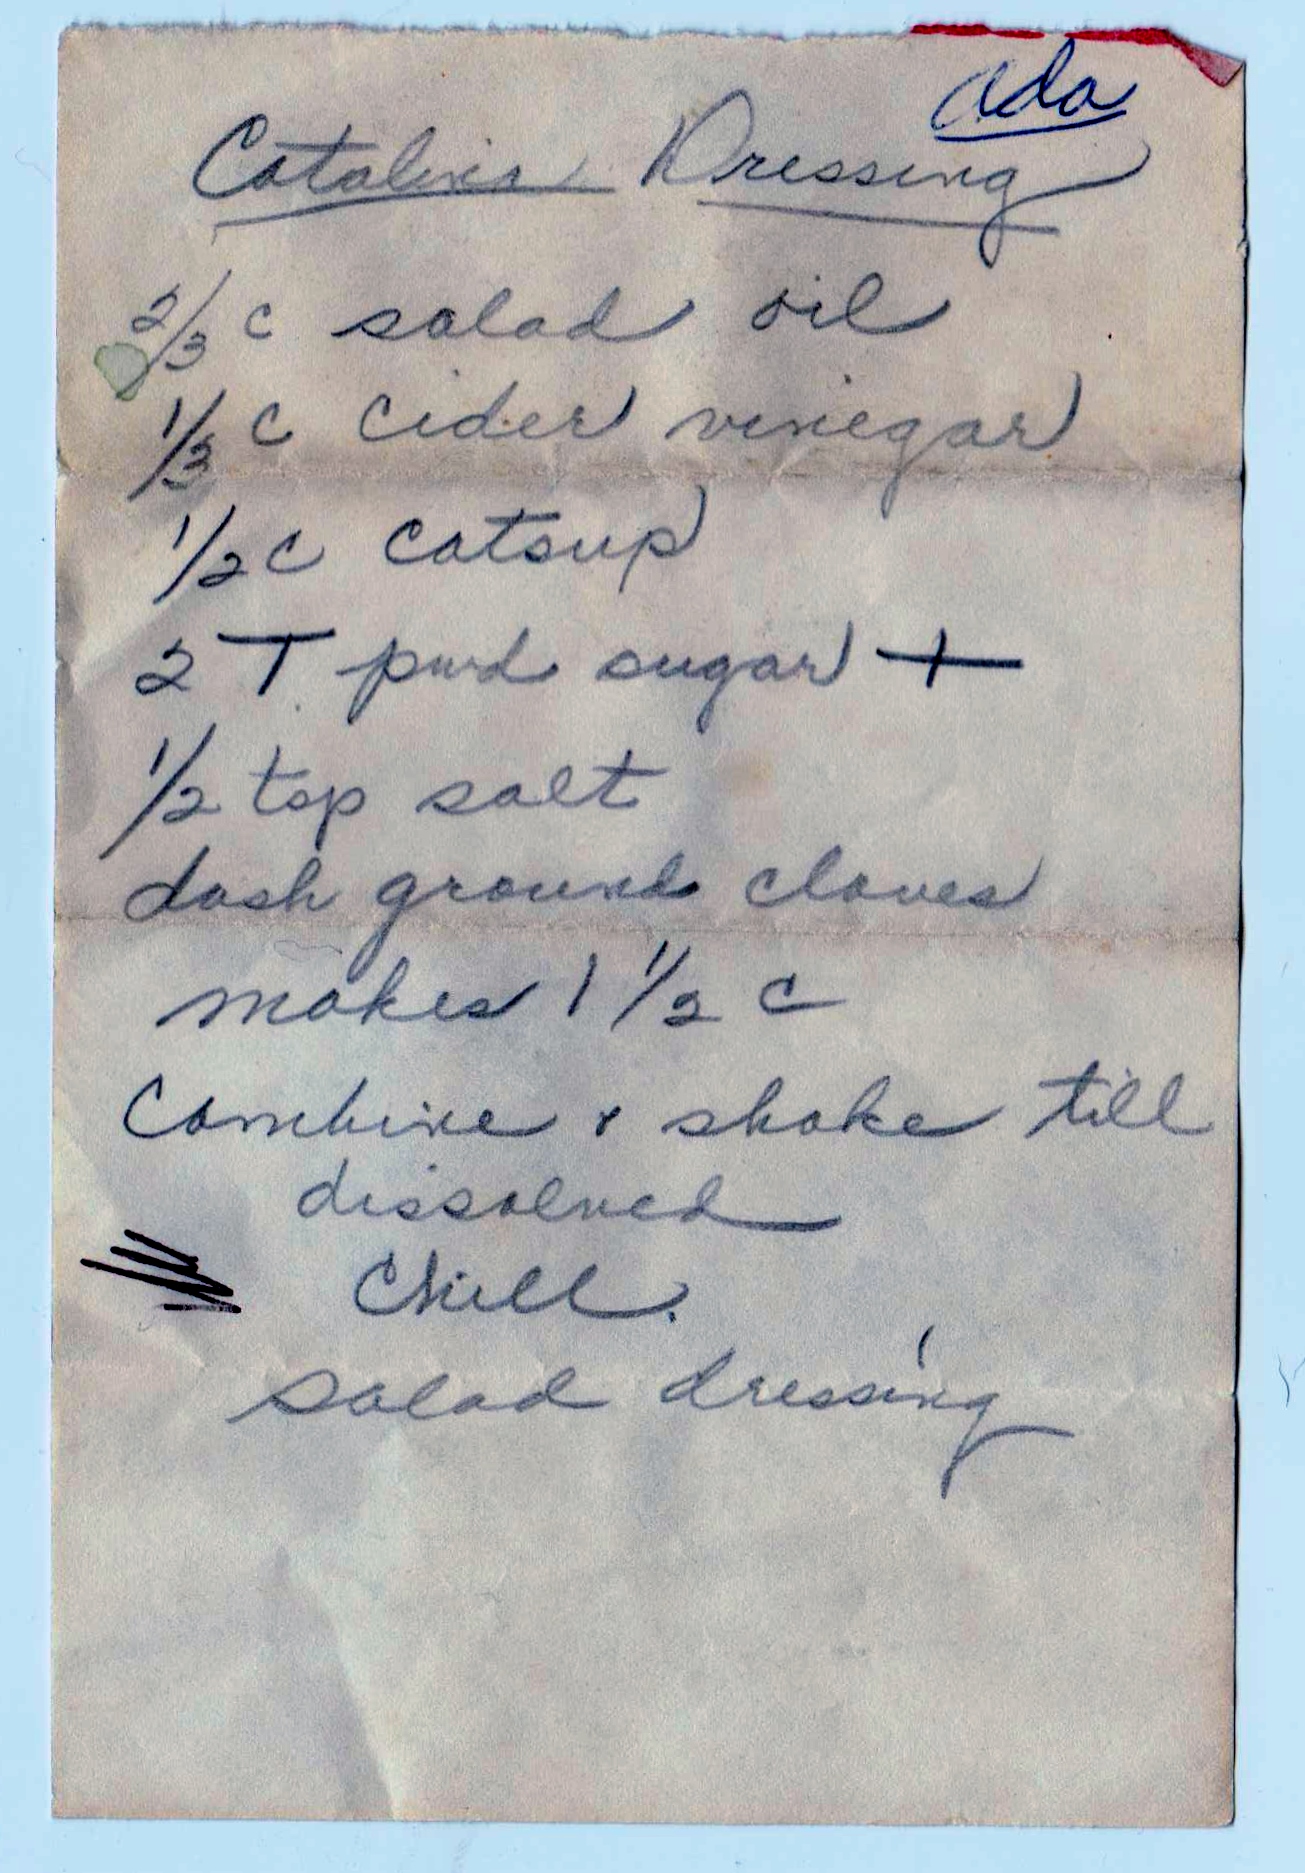 Ada
Catalina Dressing
2/3 c salad oil
1/3 c cider vinegar
1/2 c catsup
2 T pwd sugar +
1/2 tsp salt
dash ground cloves
makes 1 1/2 c
Combine & shake till
dissolved
Chill.
salad dressing